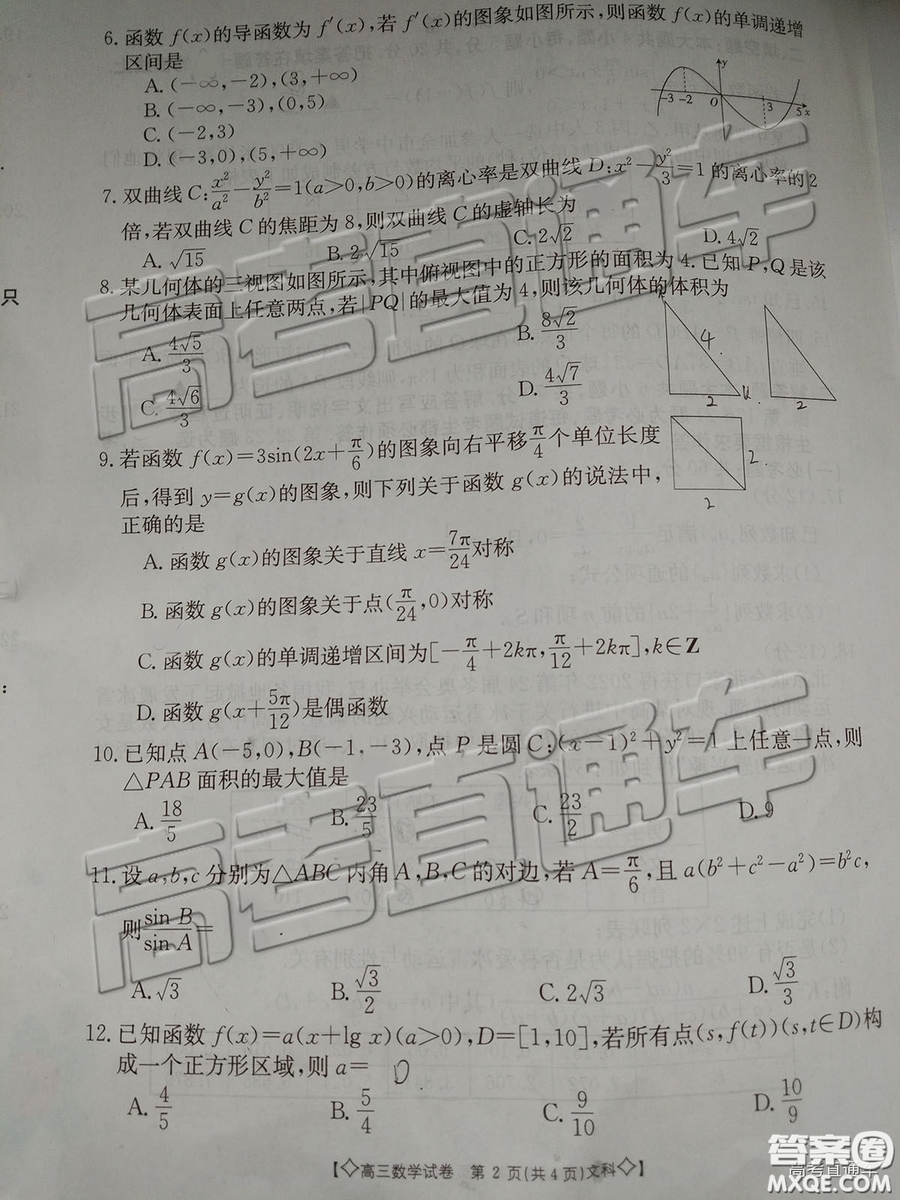 6. 函数 f(x)的导函数为 f′(x),若 f′(x)的图象如图所示,则函数 f(x)的单调递增
区间是
A. (−∞,−2),(3,+∞)
B. (−∞,−3),(0,5)
C. (−2,3)
D. (−3,0),(5,+∞)
y
−3 −2 O 3 5 x
7. 双曲线 C: x²/a² − y²/b² =1(a>0,b>0)的离心率是双曲线 D: x² − y²/3 =1 的离心率的 2
倍,若双曲线 C 的焦距为 8,则双曲线 C 的虚轴长为
A. √15 B. 2√15 C. 2√2 D. 4√2
8. 某几何体的三视图如图所示,其中俯视图中的正方形的面积为 4. 已知 P,Q 是该
几何体表面上任意两点,若|PQ|的最大值为 4,则该几何体的体积为
A. 4√5/3 B. 8√2/3
C. 4√6/3 D. 4√7/3
4
2 2
2
2
9. 若函数 f(x)=3sin(2x+π/6)的图象向右平移 π/4 个单位长度
后,得到 y=g(x)的图象,则下列关于函数 g(x)的说法中,
正确的是
A. 函数 g(x)的图象关于直线 x=7π/24 对称
B. 函数 g(x)的图象关于点(π/24,0)对称
C. 函数 g(x)的单调递增区间为[−π/4+2kπ,π/12+2kπ],k∈Z
D. 函数 g(x+5π/12)是偶函数
10. 已知点 A(−5,0),B(−1,−3),点 P 是圆 C:(x−1)²+y²=1 上任意一点,则
△PAB 面积的最大值是
A. 18/5 B. 23/5 C. 23/2 D. 9
11. 设 a,b,c 分别为△ABC 内角 A,B,C 的对边,若 A=π/6,且 a(b²+c²−a²)=b²c,
则 sin B/sin A =
A. √3 B. √3/2 C. 2√3 D. √3/3
12. 已知函数 f(x)=a(x+lg x)(a>0),D=[1,10],若所有点(s,f(t))(s,t∈D)构
成一个正方形区域,则 a=
A. 4/5 B. 5/4 C. 9/10 D. 10/9
【◇高三数学试卷 第 2 页(共 4 页)文科◇】
只
:
高考直通车
高考直通车
答案圈
高考直通车
MXQE.COM